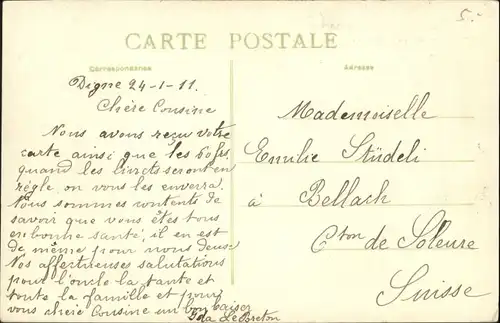 5.-
CARTE POSTALE
Correspondance
Adresse
Digne 24-1-11.
Chère Cousine
Nous avons reçu votre
carte ainsi que les 50frs
quand les livrets seront en
règle on vous les enverra.
Nous sommes contents de
savoir que vous êtes tous
en bonne santé, il en est
de même pour nous deux
Nos affectueuses salutations
pour l'oncle la tante et
toute la famille et pour
vous chère Cousine un bon baiser
Ida LeBreton
Mademoiselle
Emilie Stüdeli
à Bellach
Cton de Soleure
Suisse